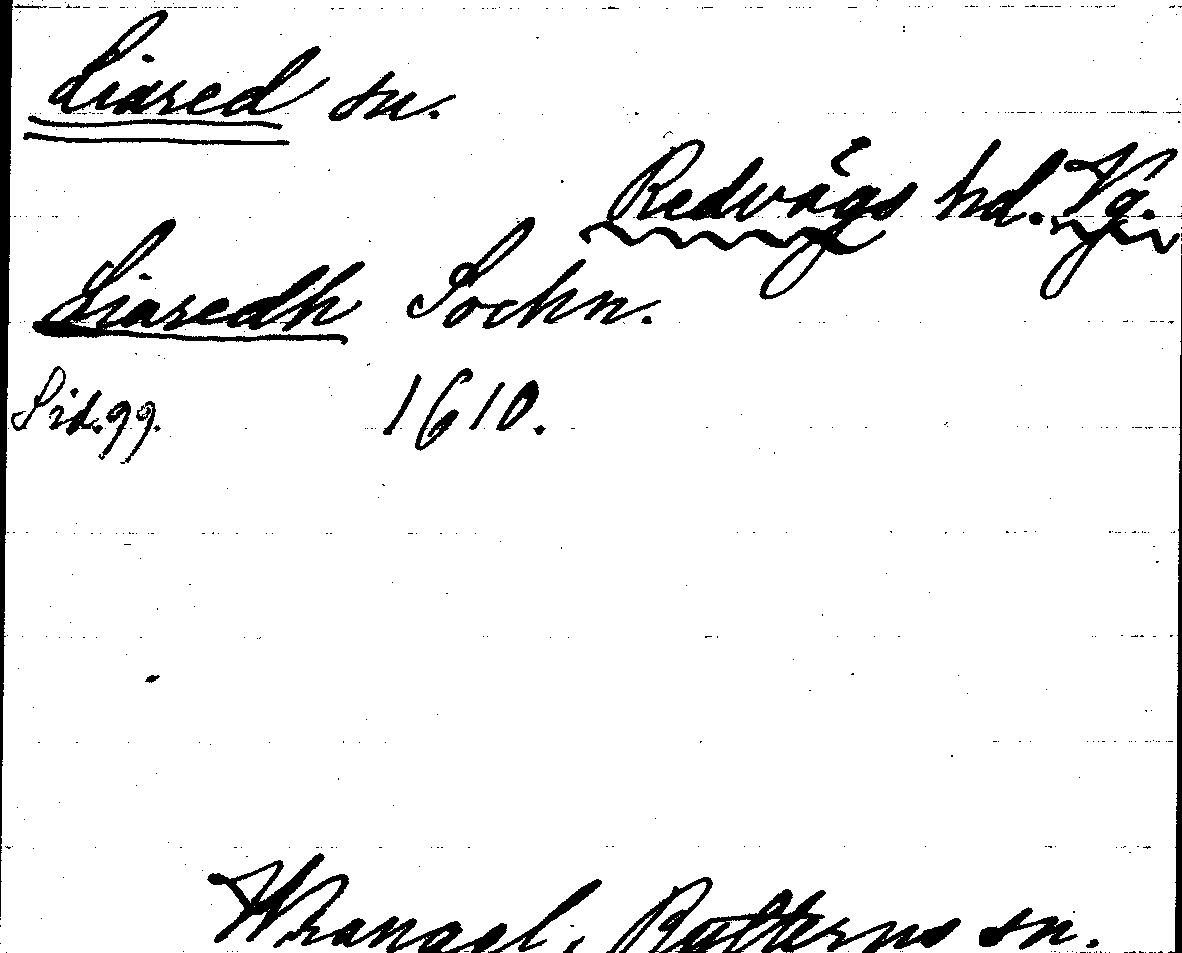 Liared sn.
Redvägs hd. Vg.
Liaredh Sochn.
Sid. 99. 1610.
Wrangel, Rytterns sn.